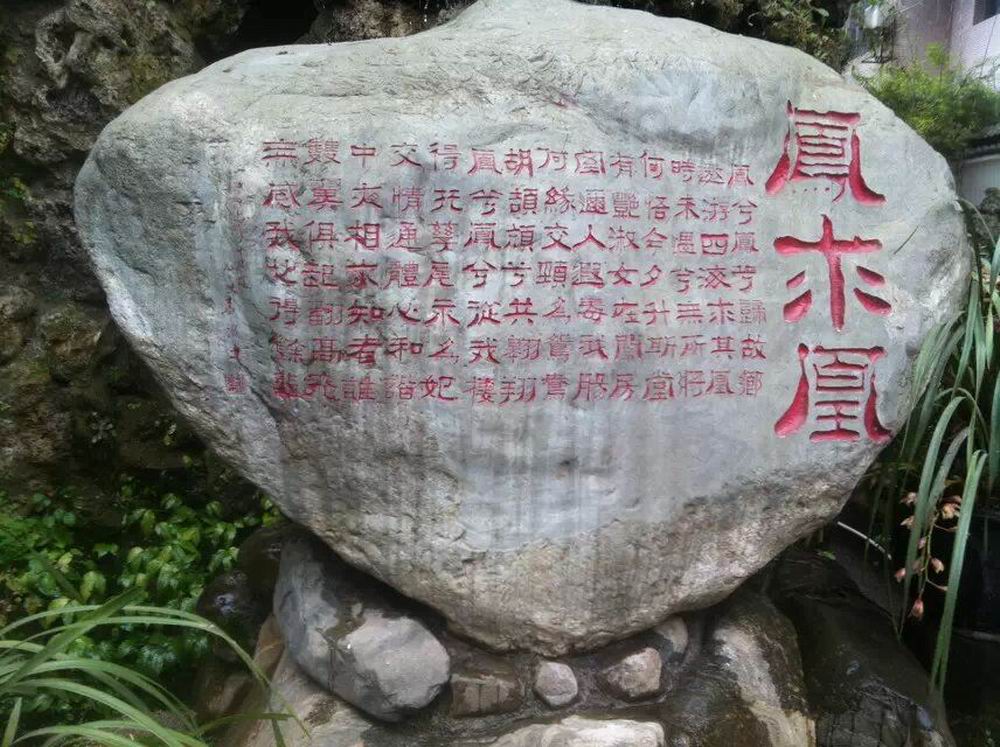 鳳求凰
鳳兮鳳兮歸故鄉
遨游四海求其凰
時未遇兮無所將
何悟今夕升斯堂
有艷淑女在閨房
室邇人遐毒我腸
何緣交頸為鴛鴦
胡頡頏兮共翱翔
鳳兮鳳兮從我棲
得托孳尾永為妃
交情通體心和諧
中夜相求知者誰
雙翼俱起翻高飛
無感我思使餘悲